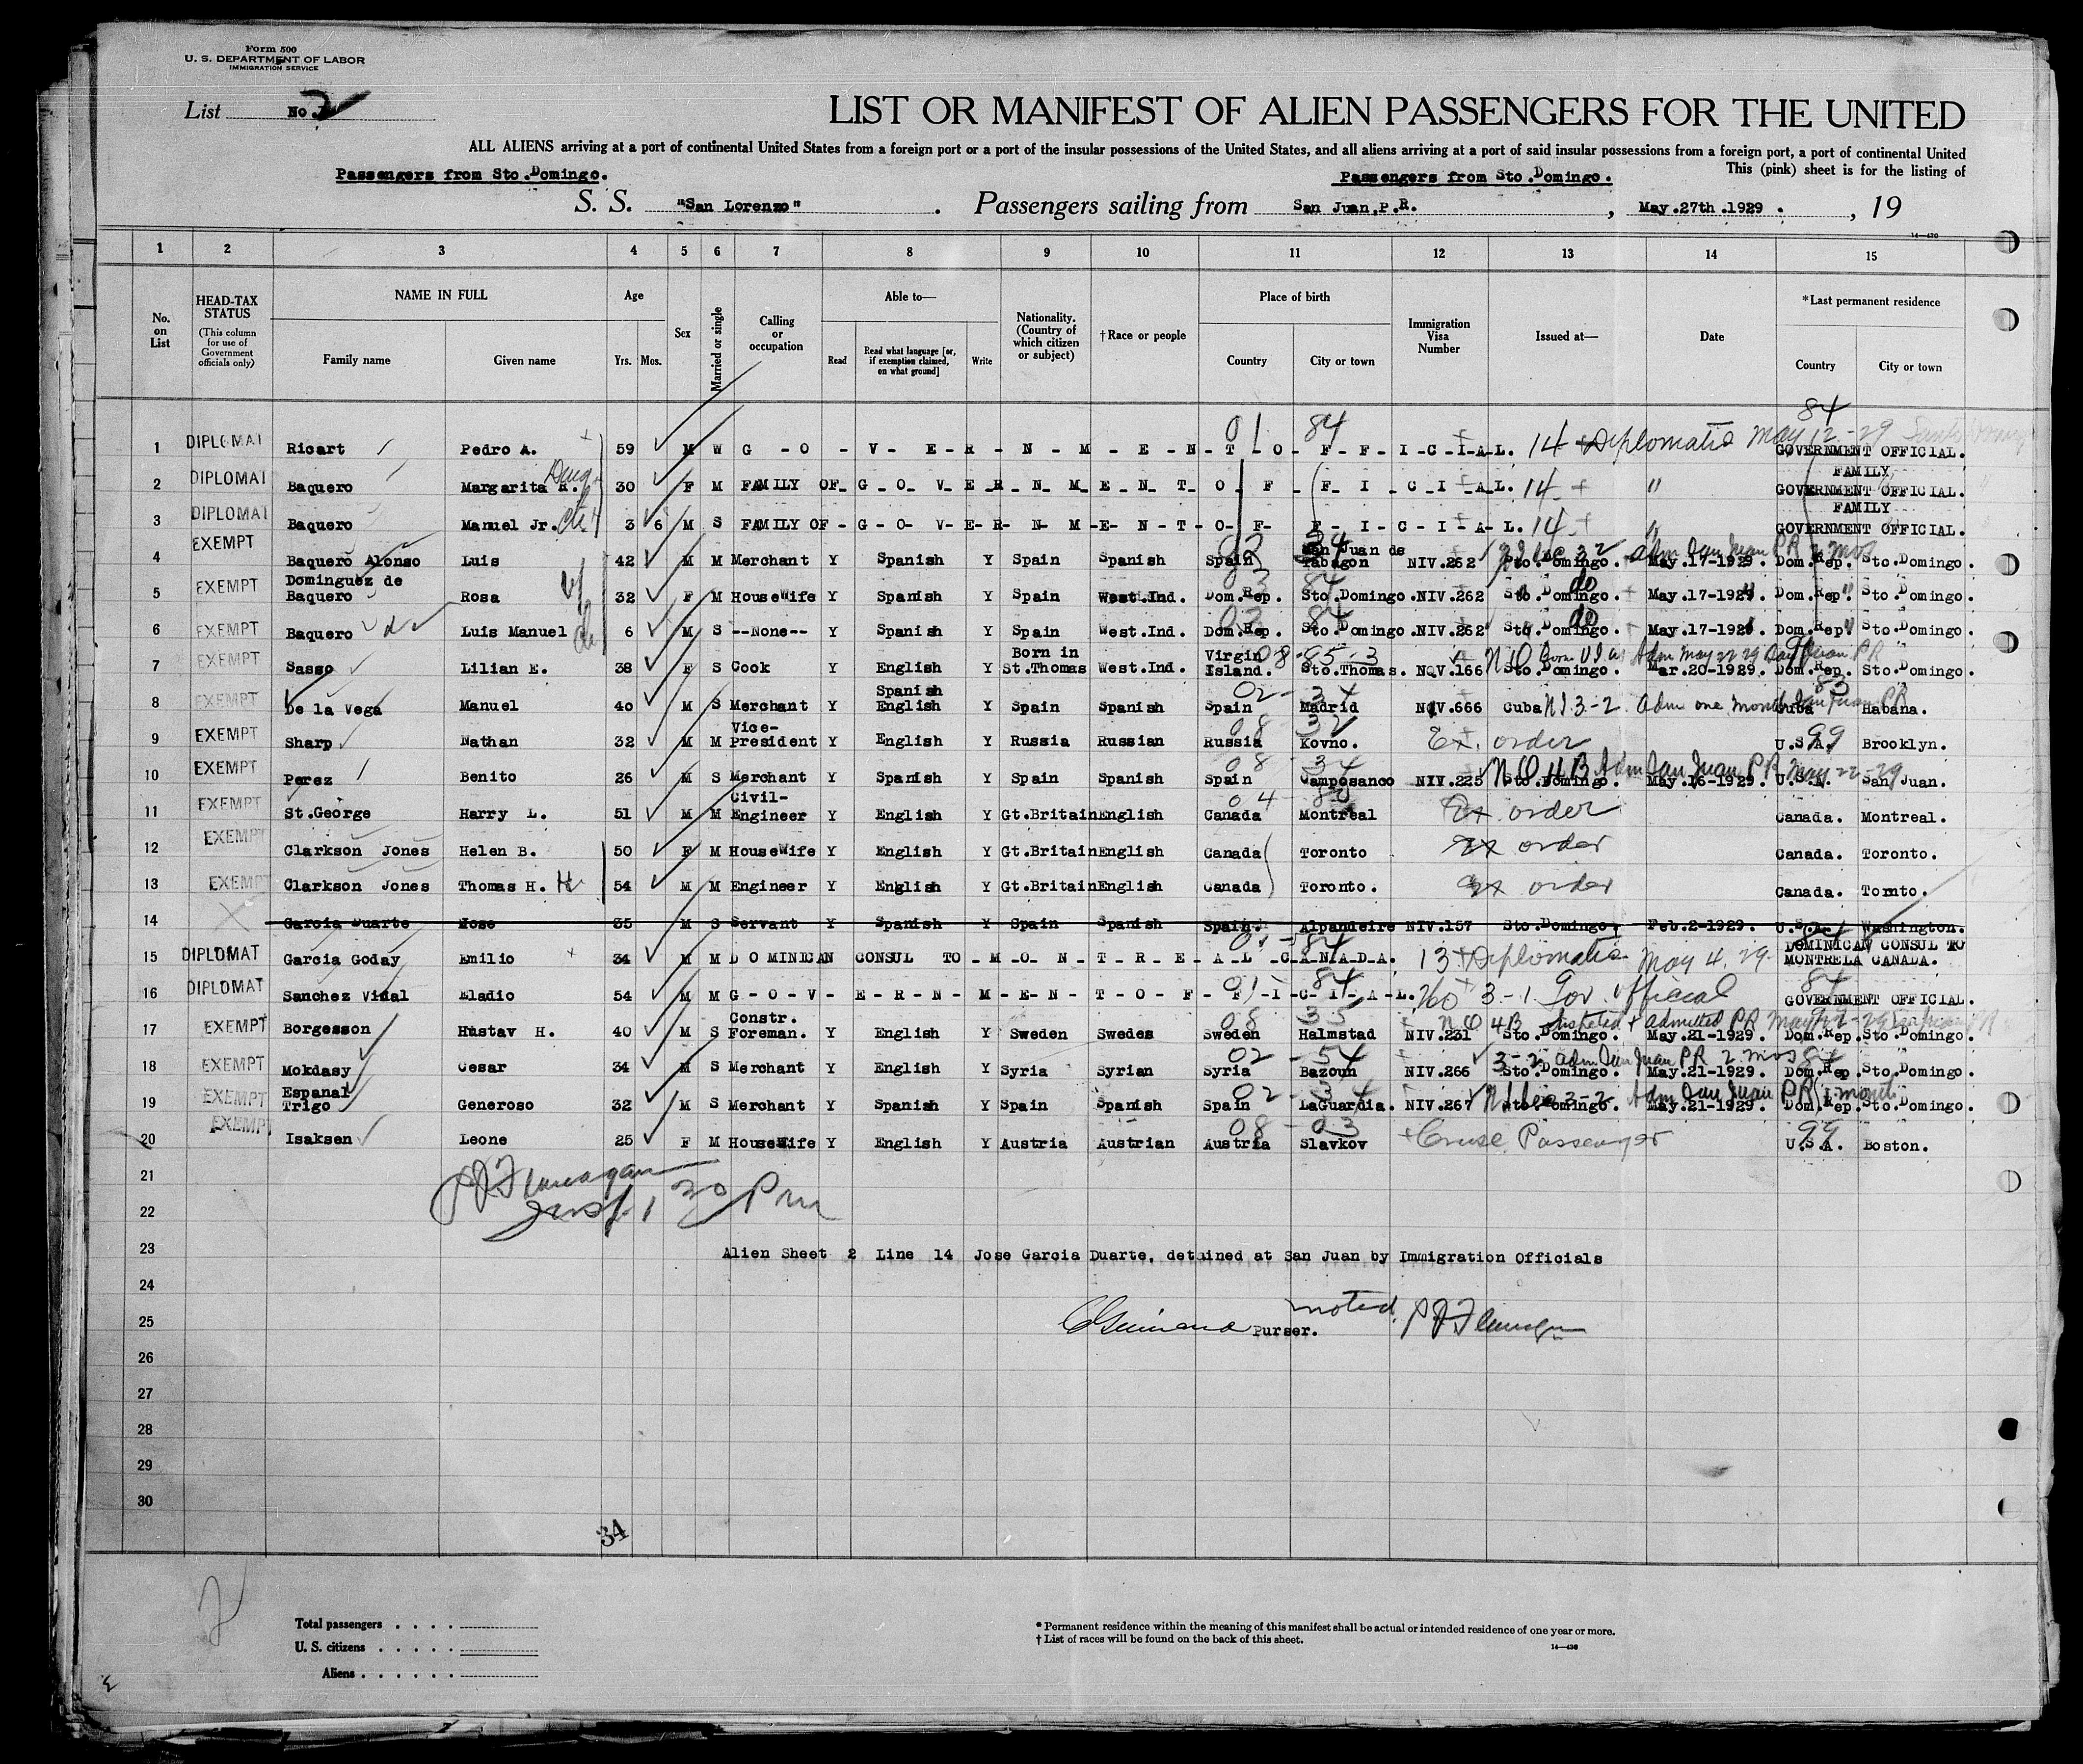 Form 500
U. S. DEPARTMENT OF LABOR
IMMIGRATION SERVICE
List No. 2
LIST OR MANIFEST OF ALIEN PASSENGERS FOR THE UNITED
ALL ALIENS arriving at a port of continental United States from a foreign port or a port of the insular possessions of the United States, and all aliens arriving at a port of said insular possessions from a foreign port, a port of continental United
Passengers from Sto.Domingo. Passengers from Sto.Domingo. This (pink) sheet is for the listing of
S. S. "San Lorenzo" . Passengers sailing from San Juan,P.R. , May.27th.1929. , 19
14—420
1 2 3 4 5 6 7 8 9 10 11 12 13 14 15
No. on List HEAD-TAX STATUS (This column for use of Government officials only) NAME IN FULL Family name Given name Age Yrs. Mos. Sex Married or single Calling or occupation Able to— Read Read what language [or, if exemption claimed, on what ground] Write Nationality. (Country of which citizen or subject) †Race or people Place of birth Country City or town Immigration Visa Number Issued at— Date *Last permanent residence Country City or town
01 84 84
1 DIPLOMAT Ricart Pedro A. 59 M W G - O - V - E - R - N - M - E - N - T - O - F - F - I - C - I - A - L. 14 Diplomatic May 12-29 GOVERNMENT OFFICIAL.
2 DIPLOMAT Baquero Margarita R. Daug 30 F M FAMILY OF G O V E R N M E N T O F F I C I A L. 14 " FAMILY GOVERNMENT OFFICIAL.
3 DIPLOMAT Baquero Manuel Jr. 3 6 M S FAMILY OF - G - O - V - E - R - N - M - E - N - T - O - F - F - I - C - I - A - L. 14 " FAMILY GOVERNMENT OFFICIAL.
4 EXEMPT Baquero Alonso Luis 42 M M Merchant Y Spanish Y Spain Spanish Spain San Juan de Tabagon NIV.262 Sto.Domingo. Adm San Juan PR 2 mos May.17-1929. Dom.Rep. Sto.Domingo.
5 EXEMPT Dominguez de Baquero Rosa 32 F M Housewife Y Spanish Y Spain West.Ind. Dom.Rep. Sto.Domingo. NIV.262 Sto.Domingo. do May.17-1929. Dom.Rep. Sto.Domingo.
6 EXEMPT Baquero Luis Manuel 6 M S --None-- Y Spanish Y Spain West.Ind. Dom.Rep. Sto.Domingo. NIV.262 Sto.Domingo. do May.17-1929. Dom.Rep. Sto.Domingo.
7 EXEMPT Sasso Lilian E. 38 F S Cook Y English Y Born in St.Thomas West.Ind. Virgin Island. Sto.Thomas. NQV.166 Sto.Domingo. Mar.20-1929. Dom.Rep. Sto.Domingo.
8 EXEMPT De la Vega Manuel 40 M S Merchant Y Spanish English Y Spain Spanish Spain Madrid NIV.666 Cuba 3-2 Adm one month San Juan PR Cuba Habana.
9 EXEMPT Sharp Nathan 32 M M Vice-President Y English Y Russia Russian Russia Kovno. Ex. order U.S.A. Brooklyn.
10 EXEMPT Perez Benito 26 M S Merchant Y Spanish Y Spain Spanish Spain Camposanco NIV.225 Sto.Domingo. Adm San Juan PR May 22-29 May.16-1929. U.S.A. San Juan.
11 EXEMPT St.George Harry L. 51 M M Civil-Engineer Y English Y Gt.Britain English Canada Montreal Ex. order Canada. Montreal.
12 EXEMPT Clarkson Jones Helen B. 50 F M Housewife Y English Y Gt.Britain English Canada Toronto Ex order Canada. Toronto.
13 EXEMPT Clarkson Jones Thomas H. H 54 M M Engineer Y English Y Gt.Britain English Canada Toronto. Ex order Canada. Toronto.
14 Garcia Duarte Jose 35 M S Servant Y Spanish Y Spain Spanish Spain. Alpandeire NIV.157 Sto.Domingo. Feb.2-1929. U.S.A. Washington.
15 DIPLOMAT Garcia Goday Emilio 34 M M DOMINICAN CONSUL TO - M - O - N - T - R - E - A - L - C A N A D A. 13 Diplomatic May 4, 29 DOMINICAN CONSUL TO MONTRELA CANADA.
16 DIPLOMAT Sanchez Vidal Eladio 54 M M G - O - V - E - R - N - M - E - N - T - O - F - F - I - C - I - A - L. 260 3-1 Gov. official GOVERNMENT OFFICIAL.
17 EXEMPT Borgesson Hustav H. 40 M S Constr. Foreman. Y English Y Sweden Swedes Sweden Halmstad NIV.231 Sto.Domingo. May.21-1929. Dom.Rep. Sto.Domingo.
18 EXEMPT Mokdasy Cesar 34 M S Merchant Y English Y Syria Syrian Syria Bazoun NIV.266 3-2 Adm San Juan PR 2 mos Sto.Domingo. May.21-1929. Dom.Rep. Sto.Domingo.
19 EXEMPT Espanal Trigo Generoso 32 M S Merchant Y Spanish Y Spain Spanish Spain LaGuardia. NIV.267 3-2 Adm San Juan PR 1 month Sto.Domingo. May.21-1929. Dom.Rep. Sto.Domingo.
20 EXEMPT Isaksen Leone 25 F M Housewife Y English Y Austria Austrian Austria Slavkov Cruse Passenger U.S.A. Boston.
21 PJ Flanagan
22 Insp. 1 30 Pm
23 Alien Sheet 2 Line 14 Jose Garcia Duarte, detained at San Juan by Immigration Officials
24
25 Purser. noted. PJ Flanagan
26
27
28
29
30
34
2
Total passengers
U. S. citizens
Aliens
* Permanent residence within the meaning of this manifest shall be actual or intended residence of one year or more.
† List of races will be found on the back of this sheet.
14—420